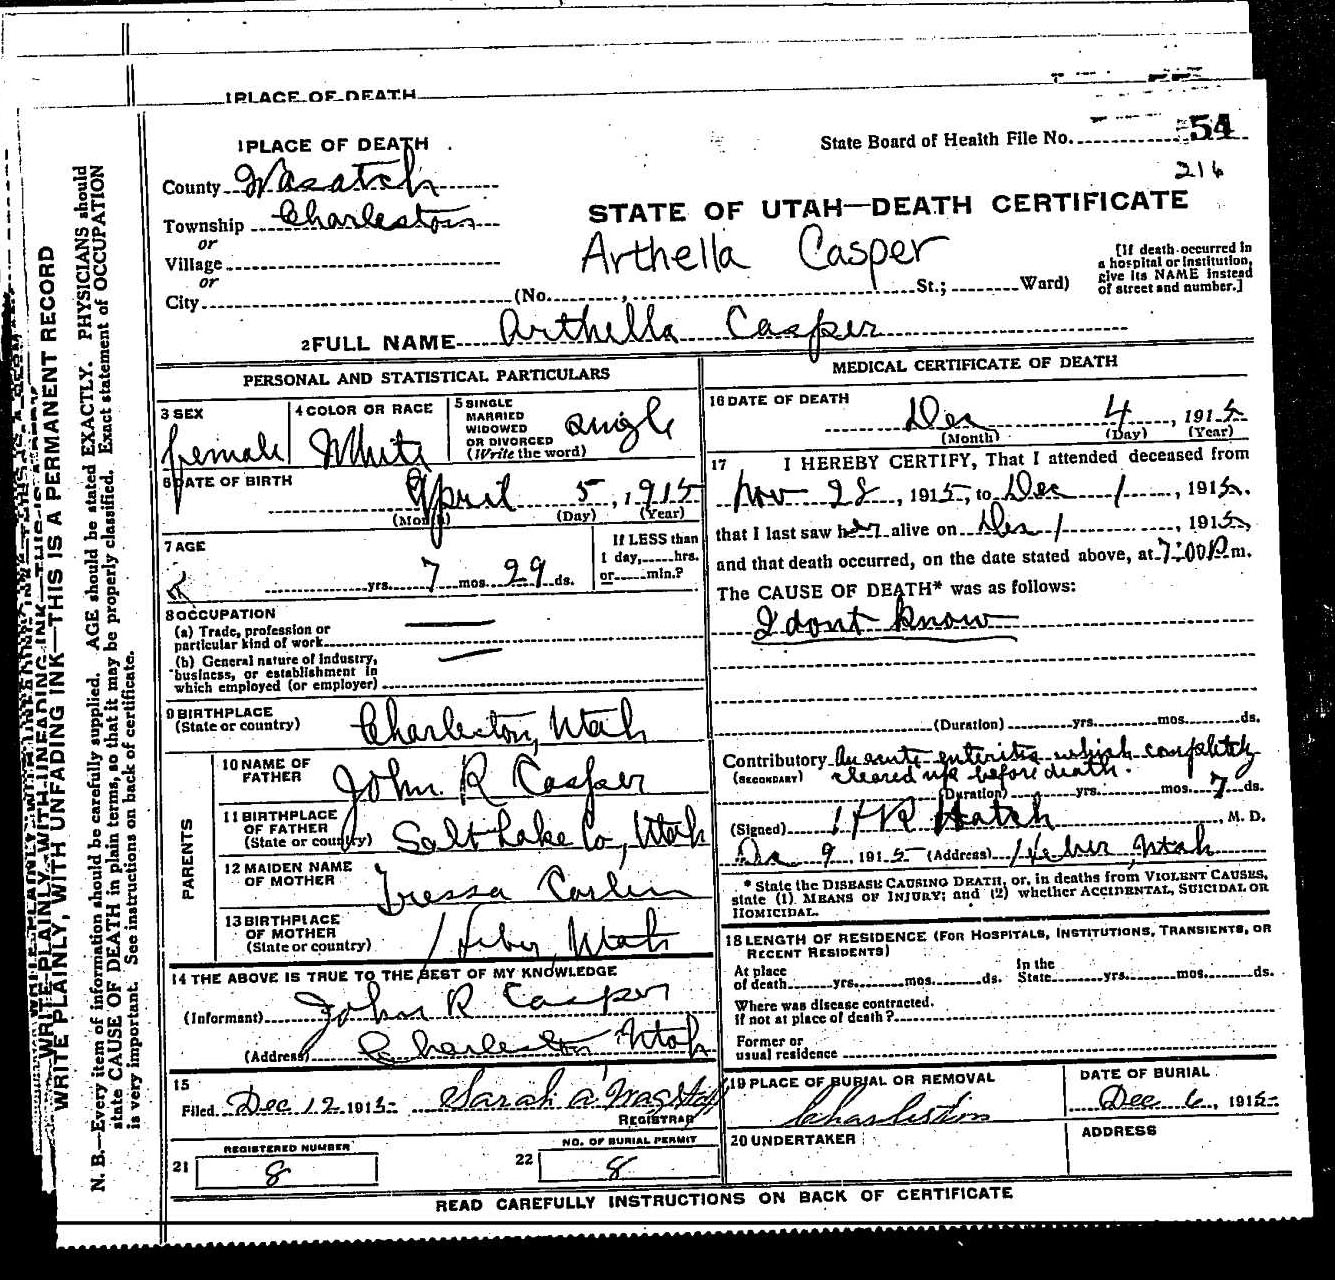 1 PLACE OF DEATH
1 PLACE OF DEATH
State Board of Health File No. 54
216
County Wasatch
Township Charleston
or
Village
or
City
STATE OF UTAH—DEATH CERTIFICATE
Arthella Casper
(No. , St.; Ward)
[If death occurred in
a hospital or institution,
give its NAME instead
of street and number.]
2 FULL NAME Arthella Casper
PERSONAL AND STATISTICAL PARTICULARS
3 SEX
female
4 COLOR OR RACE
White
5 SINGLE
MARRIED
WIDOWED
OR DIVORCED
(Write the word)
single
6 DATE OF BIRTH
April 5, 1915
(Month) (Day) (Year)
7 AGE
yrs. 7 mos. 29 ds.
If LESS than
1 day, hrs.
or min.?
8 OCCUPATION
(a) Trade, profession or
particular kind of work
(b) General nature of industry,
business, or establishment in
which employed (or employer)
9 BIRTHPLACE
(State or country) Charleston, Utah
PARENTS
10 NAME OF
FATHER John R Casper
11 BIRTHPLACE
OF FATHER
(State or country) Salt Lake Co, Utah
12 MAIDEN NAME
OF MOTHER Tressa
13 BIRTHPLACE
OF MOTHER
(State or country) Heber, Utah
14 THE ABOVE IS TRUE TO THE BEST OF MY KNOWLEDGE
(Informant) John R Casper
(Address) Charleston, Utah
15
Filed Dec 12 1915 Sarah A Wagstaff
REGISTRAR
21 REGISTERED NUMBER
8
22 NO. OF BURIAL PERMIT
8
MEDICAL CERTIFICATE OF DEATH
16 DATE OF DEATH
Dec 4, 1915
(Month) (Day) (Year)
17 I HEREBY CERTIFY, That I attended deceased from
Nov 28, 1915, to Dec 1, 1915,
that I last saw her alive on Dec 1, 1915,
and that death occurred, on the date stated above, at 7:00 P.m.
The CAUSE OF DEATH* was as follows:
I dont know
(Duration) yrs. mos. ds.
Contributory An acute enteritis which completely
(SECONDARY) cleared up before death.
(Duration) yrs. mos. 7 ds.
(Signed) H R Hatch, M. D.
Dec 9, 1915 (Address) Heber, Utah
* State the DISEASE CAUSING DEATH, or, in deaths from VIOLENT CAUSES,
state (1) MEANS OF INJURY; and (2) whether ACCIDENTAL, SUICIDAL OR
HOMICIDAL.
18 LENGTH OF RESIDENCE (FOR HOSPITALS, INSTITUTIONS, TRANSIENTS, OR
RECENT RESIDENTS)
At place
of death yrs. mos. ds.
In the
State yrs. mos. ds.
Where was disease contracted.
if not at place of death?
Former or
usual residence
19 PLACE OF BURIAL OR REMOVAL
Charleston
DATE OF BURIAL
Dec 6, 1915
20 UNDERTAKER
ADDRESS
READ CAREFULLY INSTRUCTIONS ON BACK OF CERTIFICATE
WRITE PLAINLY, WITH UNFADING INK—THIS IS A PERMANENT RECORD
N. B.—Every item of information should be carefully supplied. AGE should be stated EXACTLY. PHYSICIANS should
state CAUSE OF DEATH in plain terms, so that it may be properly classified. Exact statement of OCCUPATION
is very important. See instructions on back of certificate.